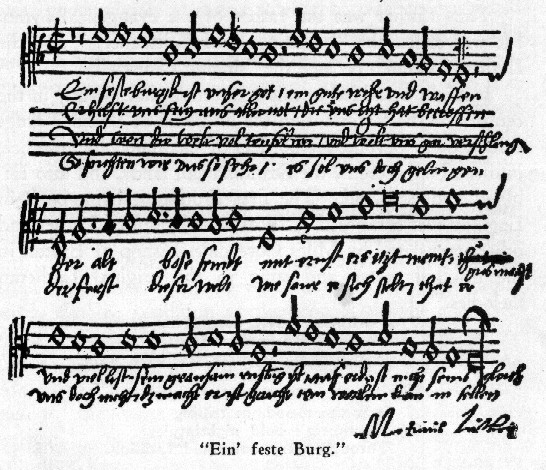 Ein feste burgk ist unser got / ein gute wehr und waffen
Er hilfft uns frey aus aller not / die uns hat betroffen
Und wenn die welt vol teuffel wer / und wolt uns gar verschlingen
So furchten wir uns so sehr / es sol uns doch gelingen
Der alt bose feindt mit ernst ers itzt meint gros macht
der furst dieser welt wie saur er sich stelt thut er
und viel list sein grausam ist auf erd ist nicht seins gleich
uns doch nicht macht er ist ein wortlein kan in fellen
Martinus Luther
"Ein' feste Burg."